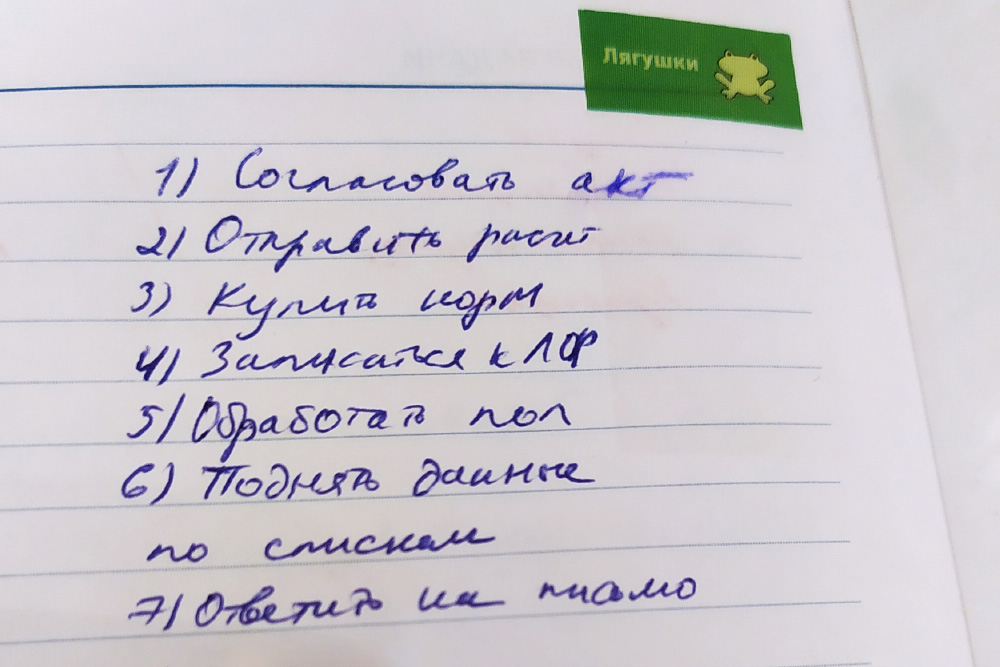 Лягушки
1) Согласовать акт
2) Отправить расчет
3) Купить корм
4) Записаться к ЛФК
5) Обработать пол
6) Поднять данные
по спискам
7) Ответить на письмо